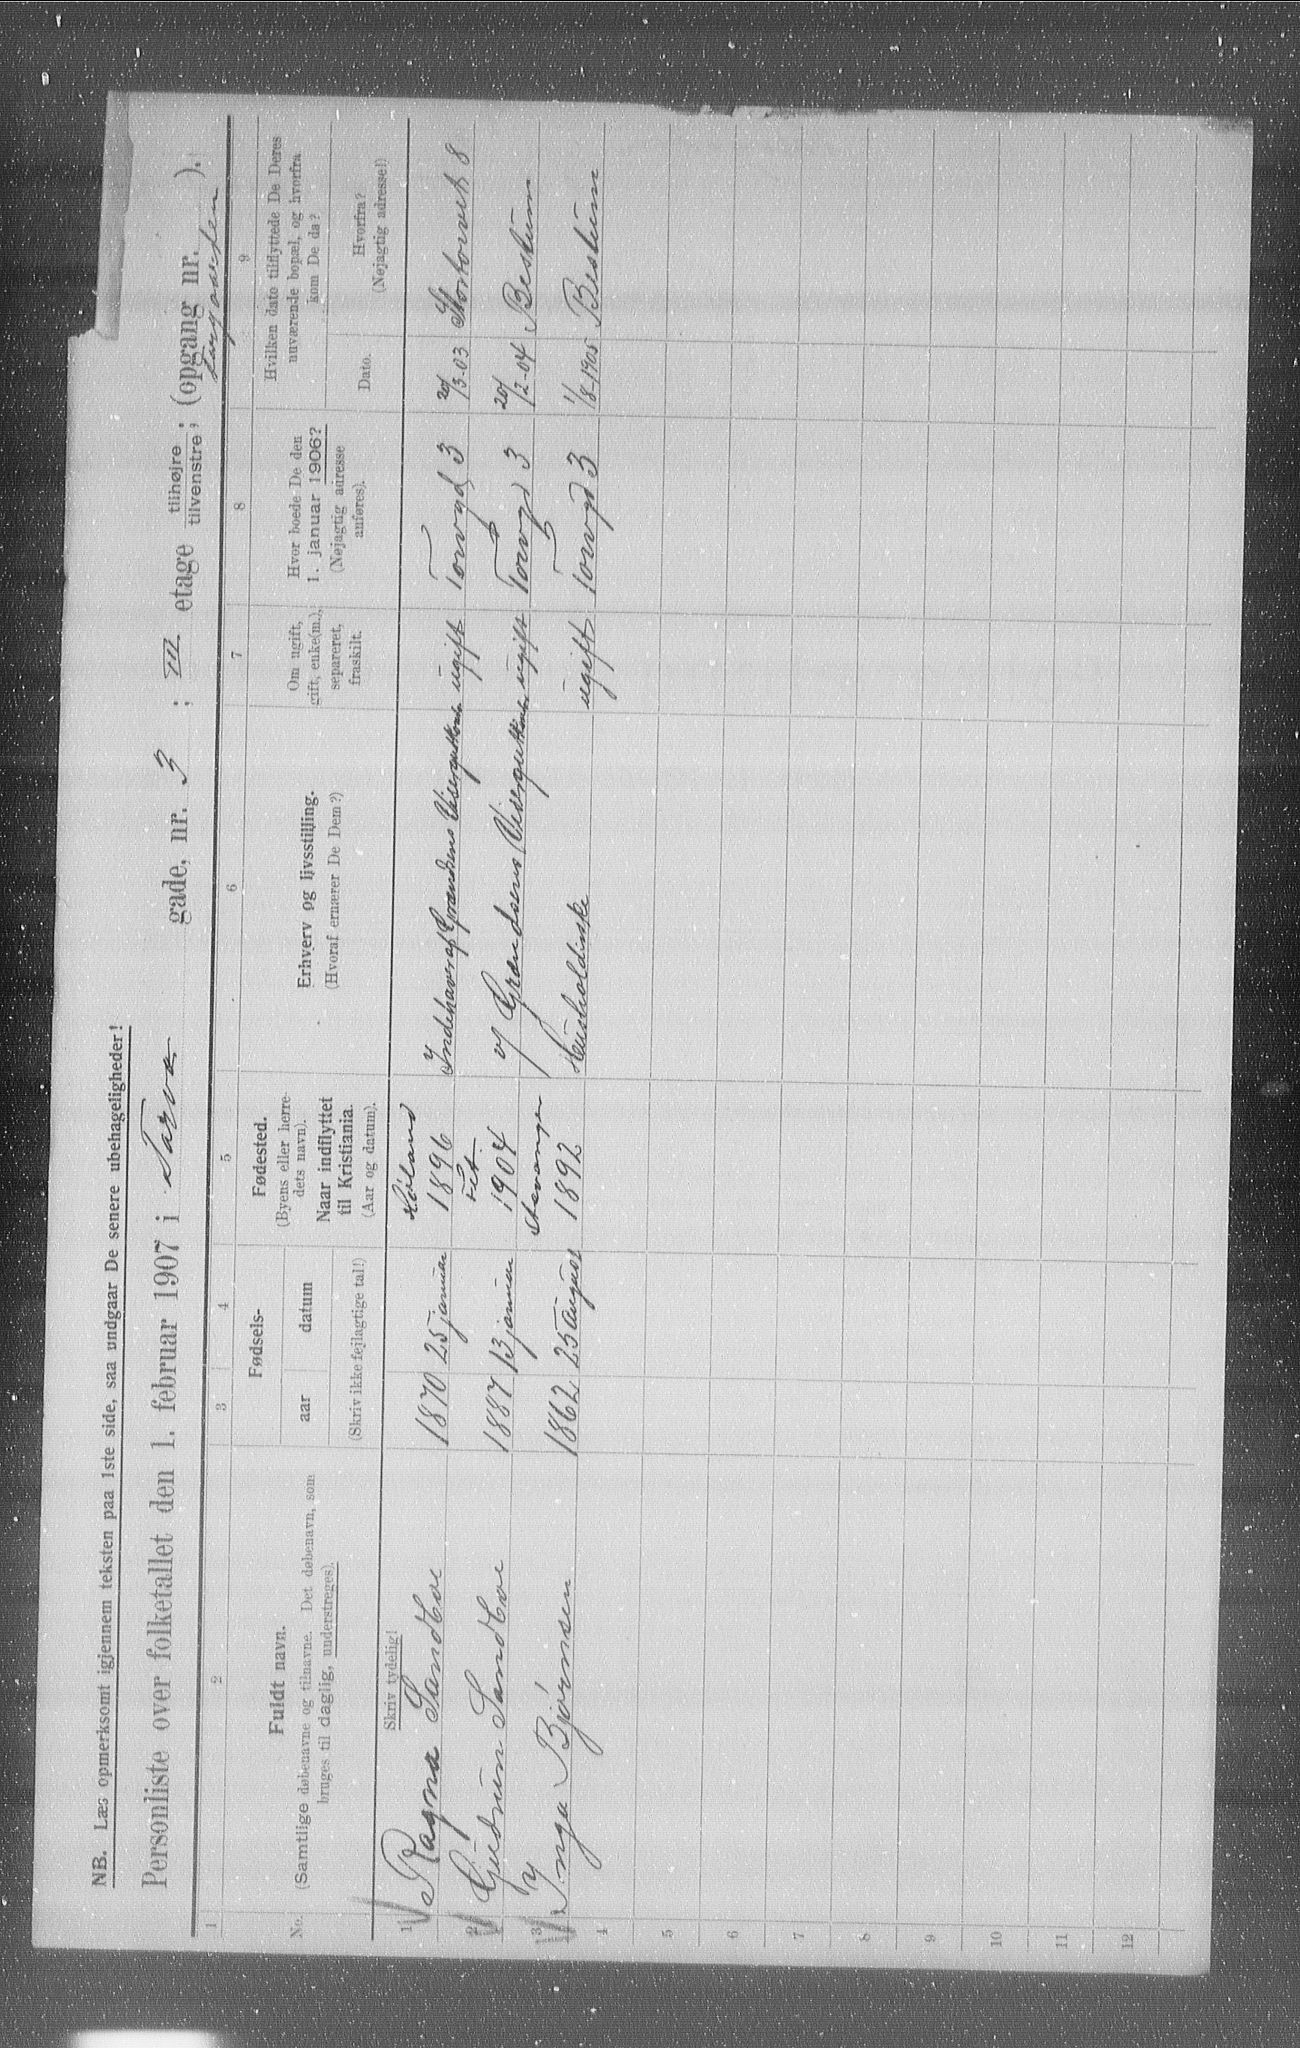 NB. Læs opmerksomt igjennem teksten paa 1ste side, saa undgaar De senere ubehageligheder!
Personliste over folketallet den 1. februar 1907 i Torv gade, nr. 3 ; III etage tilhøjre, tilvenstre, (opgang nr. ).
Forgaarden
1 2 3 4 5 6 7 8 9
No.
Fuldt navn.
(Samtlige døbenavne og tilnavne. Det døbenavn, som
bruges til daglig, understreges).
Skriv tydelig!
Fødsels-
aar datum
(Skriv ikke fejlagtige tal!)
Fødested.
(Byens eller herre-
dets navn).
Naar indflyttet
til Kristiania.
(Aar og datum).
Erhverv og livsstilling.
(Hvoraf ernærer De Dem?)
Om ugift,
gift, enke(m.),
separeret,
fraskilt.
Hvor boede De den
1. januar 1906?
(Nøjagtig adresse
anføres).
Hvilken dato tilflyttede De Deres
nuværende bopæl, og hvorfra
kom De da?
Dato.
Hvorfra?
(Nøjagtig adresse!)
1 Ragna Sandboe 1870 25 januar Høland 1896 Indehaver af Grændsens Visergutkont. ugift Torvgd 3 20/3-03 Stortorvet 8
2 Gudrun Sandboe 1887 13 januar 1904 Grændsens Visergutkont. ugift Torvgd 3 20/2-04 Bestum
3 Inga Bjørnsen 1862 25 August Stavanger 1892 Husholderske ugift Torvgd 3 1/8-1905 Bestum
4
5
6
7
8
9
10
11
12